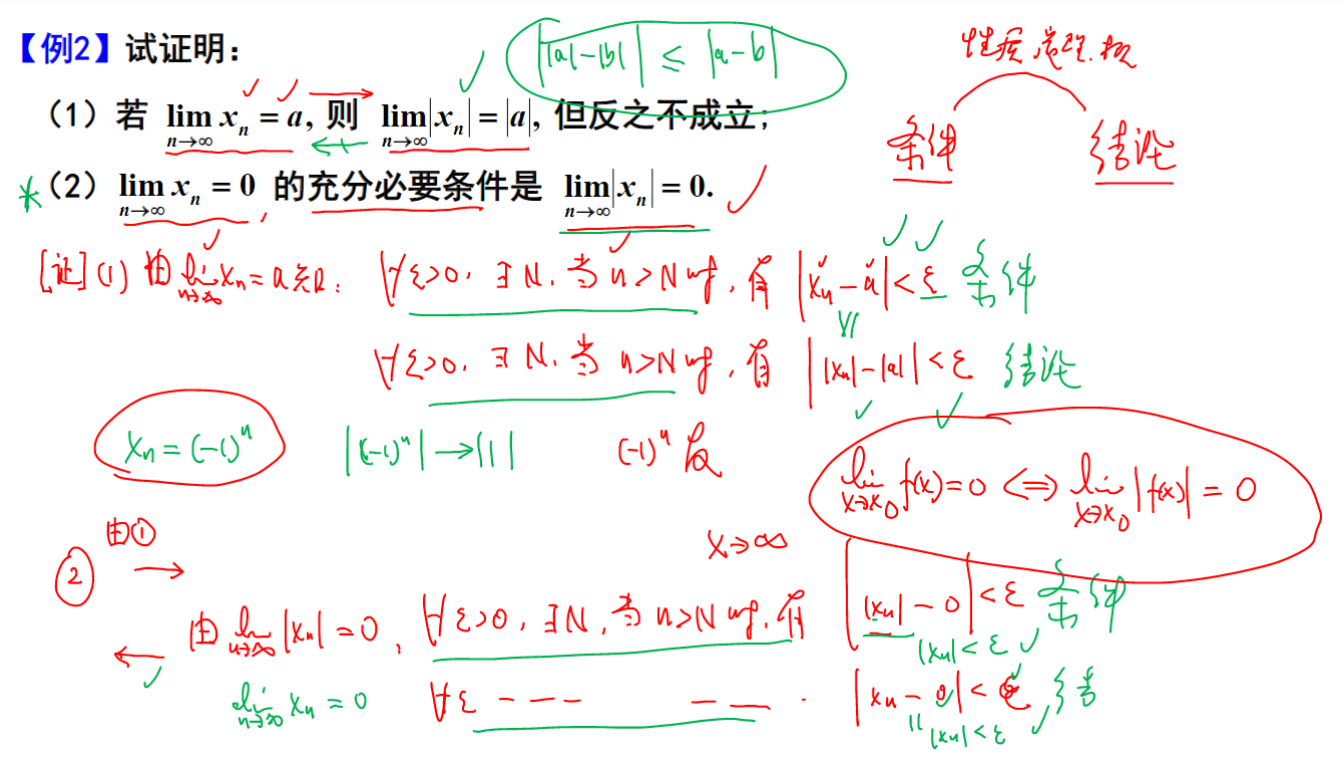 【例2】试证明：
||a|-|b|| ≤ |a-b|
（1）若 lim_{n→∞} x_n = a, 则 lim_{n→∞} |x_n| = |a|, 但反之不成立；
条件 结论
*（2） lim_{n→∞} x_n = 0 的充分必要条件是 lim_{n→∞} |x_n| = 0.
[证] (1) 由 lim_{n→∞} x_n = a 知： ∀ε>0, ∃N, 当 n>N 时, 有 |x_n - a| < ε 条件
∀ε>0, ∃N, 当 n>N 时, 有 ||x_n| - |a|| < ε 结论
x_n = (-1)^n |(-1)^n| → |1| (-1)^n
lim_{x→x_0} f(x) = 0 ⟺ lim_{x→x_0} |f(x)| = 0
由①
② → x→∞
← 由 lim_{n→∞} |x_n| = 0, ∀ε>0, ∃N, 当 n>N 时, 有 ||x_n| - 0| < ε 条件
|x_n| < ε
lim_{n→∞} x_n = 0 ∀ε --- -- . |x_n - 0| < ε 结
|x_n| < ε